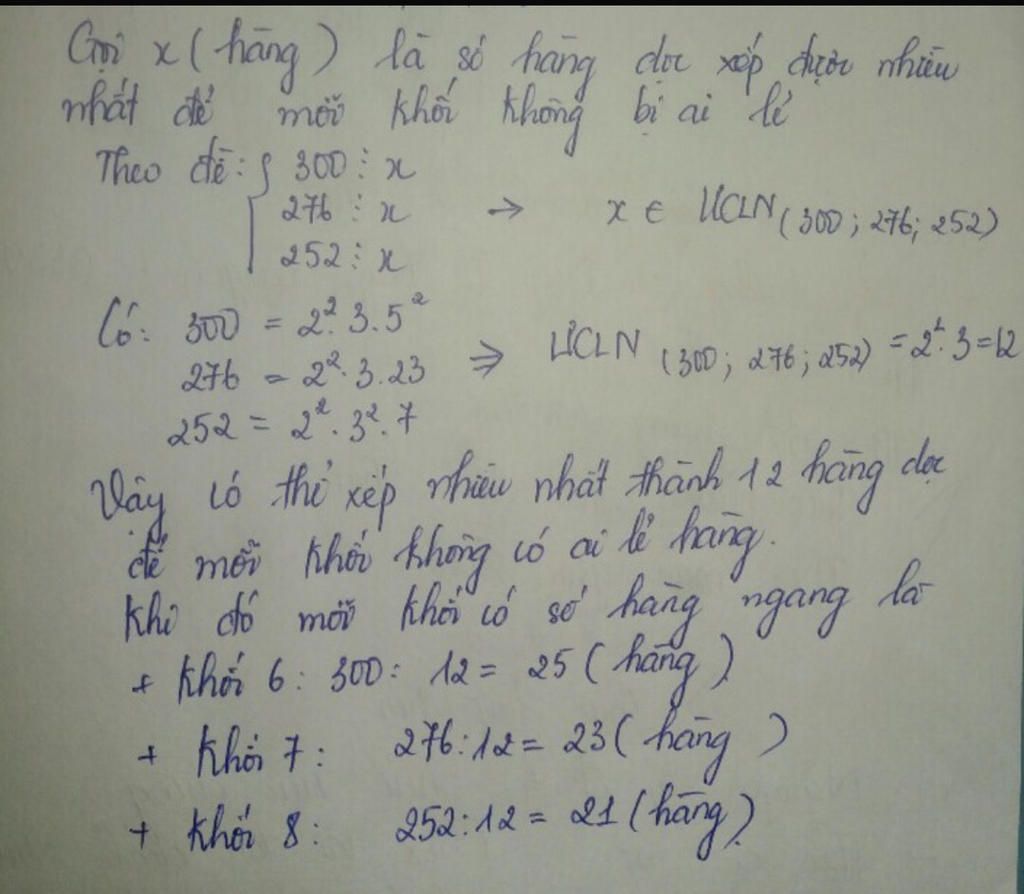 Gọi x (hàng) là số hàng dọc xếp được nhiều
nhất để mỗi khối không bị ai lẻ
Theo đề: { 300 ⋮ x
276 ⋮ x → x ∈ ƯCLN (300; 276; 252)
252 ⋮ x
Có: 300 = 2². 3. 5²
276 = 2². 3. 23 ⇒ ƯCLN (300; 276; 252) = 2². 3 = 12
252 = 2². 3². 7
Vậy có thể xếp nhiều nhất thành 12 hàng dọc
để mỗi khối không có ai lẻ hàng.
Khi đó mỗi khối có số hàng ngang là
+ Khối 6: 300: 12 = 25 (hàng)
+ Khối 7: 276:12 = 23 (hàng)
+ Khối 8: 252:12 = 21 (hàng).